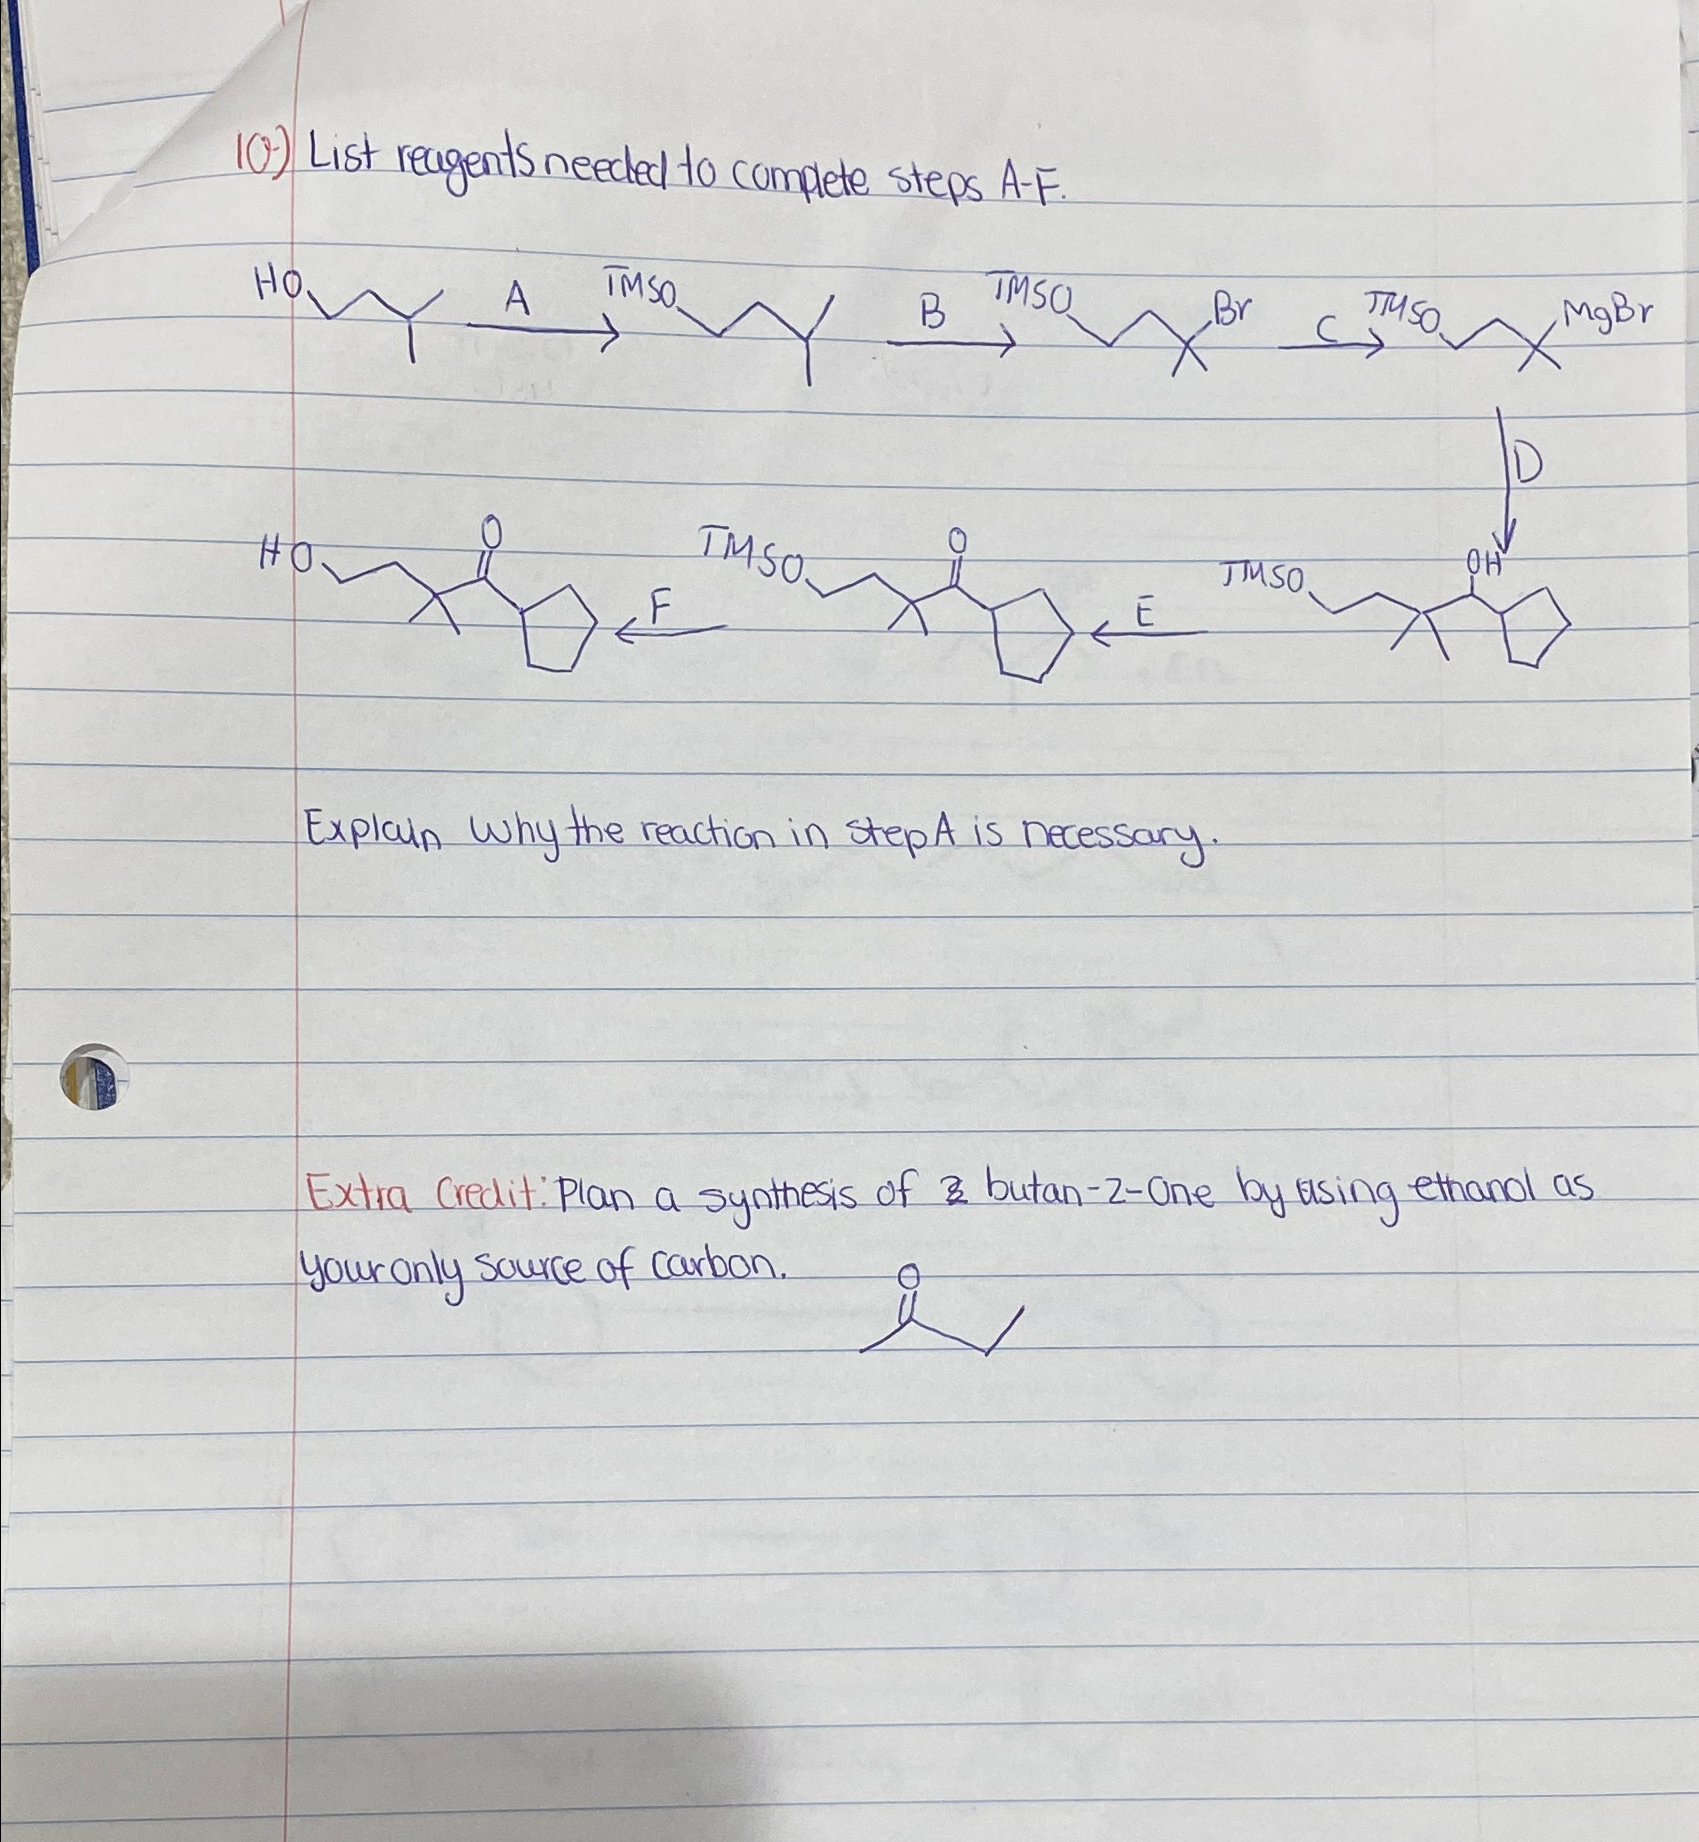 10.) List reagents needed to complete steps A-F.
HO A TMSO B TMSO Br C TMSO MgBr
D
HO O F TMSO O E TMSO OH
Explain why the reaction in step A is necessary.
Extra Credit: Plan a synthesis of butan-2-one by using ethanol as
your only source of carbon.
O